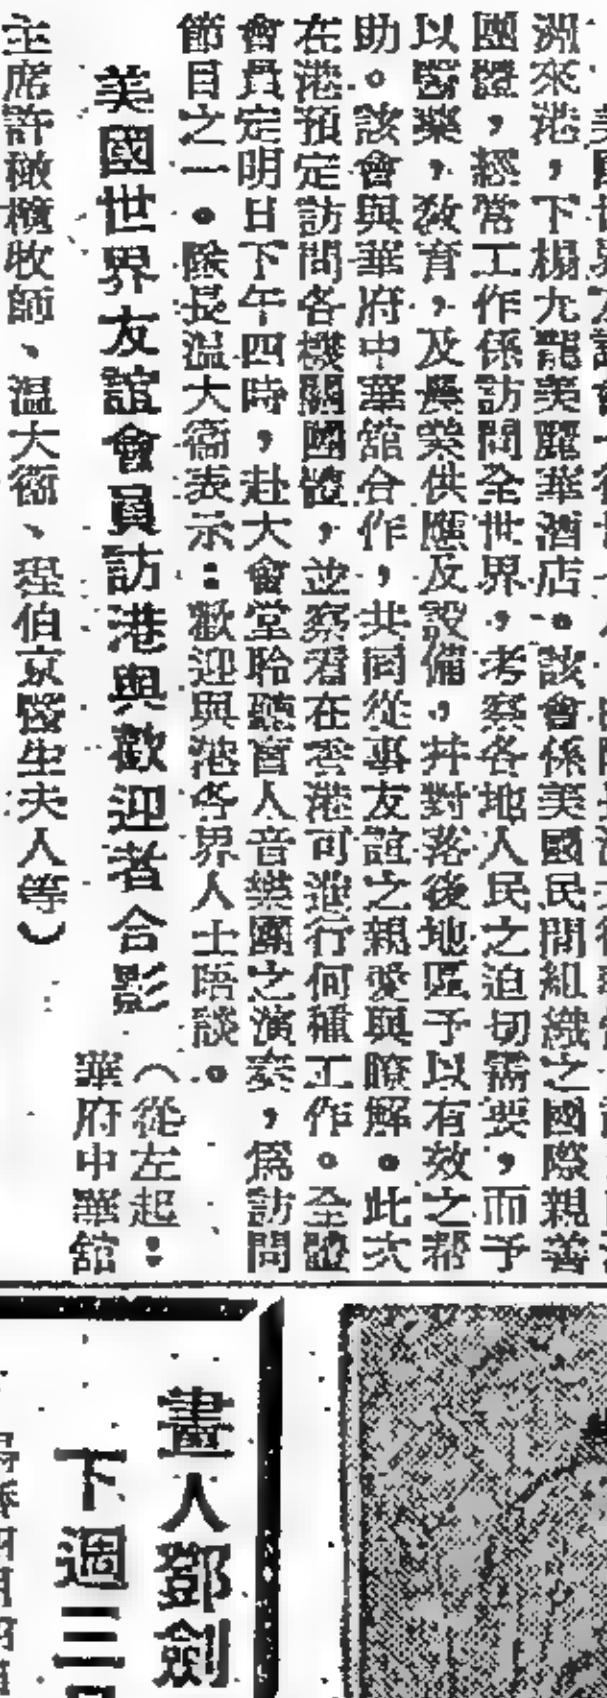 洲來港，下榻九龍美麗華酒店。該會係美國民間組織之國際親善
團體，經常工作係訪問全世界，考察各地人民之迫切需要，而予
以醫藥，敎育，及農業供應及設備，幷對落後地區予以有效之幫
助。該會與華府中華舘合作，共同從事友誼之親愛與瞭解。此次
在港預定訪問各機關團體，並察看在香港可進行何種工作。全體
會員定明日下午四時，赴大會堂聆聽盲人音樂團之演奏，爲訪問
節目之一。除長温大衞表示：歡迎與港各界人士晤談。
美國世界友誼會員訪港與歡迎者合影
（從左起：
華府中華舘
主席許橄欖牧師、温大衞、程伯京醫生夫人等）
畫人鄧劍
下週三